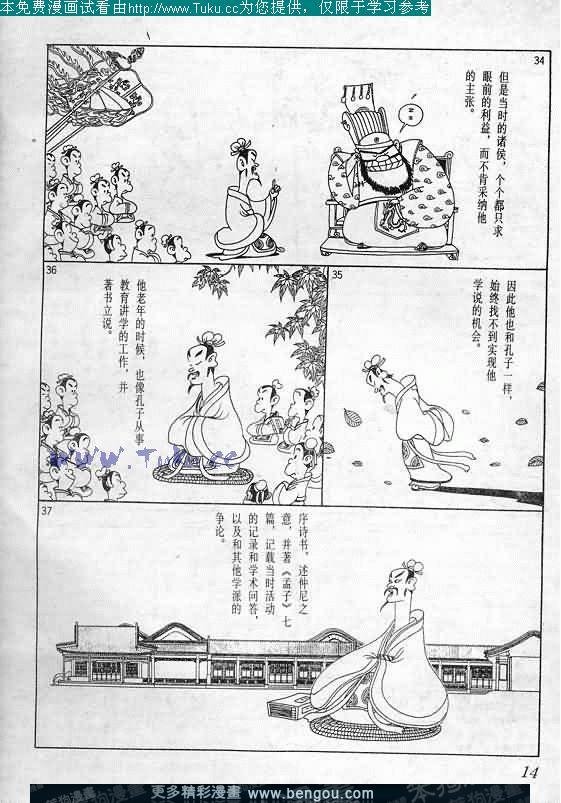 本免费漫画试看由http://www.Tuku.cc为您提供，仅限于学习参考
34
但是当时的诸侯，个个都只求
眼前的利益，而不肯采纳他
的主张。
35
因此他也和孔子一样，
始终找不到实现他
学说的机会。
36
他老年的时候，也像孔子从事
教育讲学的工作，并
著书立说。
www.Tuku.cc
37
序诗书，述仲尼之
意，并著《孟子》七
篇，记载当时活动
的记录和学术问答，
以及和其他学派的
争论。
14
更多精彩漫畫 www.bengou.com